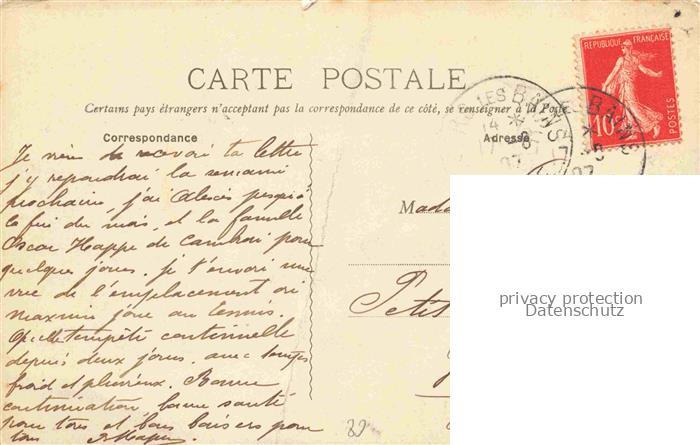 RÉPUBLIQUE FRANÇAISE
10
POSTES
CARTE POSTALE
Certains pays étrangers n'acceptent pas la correspondance de ce côté, se renseigner à la Poste
LES BAINS
14 * 8
07
LES BAINS
* 5
07
Correspondance
Adresse
Je viens de recevoir ta lettre
j'y repondrai la semaine
prochaine, j'ai Alexis jusqu'à
la fin du mois, et la famille
Oscar Happe de Cambrai pour
quelques jours, je t'envoie une
vue de l'emplacement où
maxim joue au tennis.
tempête continuelle
depuis deux jours, avec temps
froid et pluvieux. Bonne
continuation, bonne santé
pour tous et bons baisers pour
tous
Mada
Petit
39
privacy protection
Datenschutz